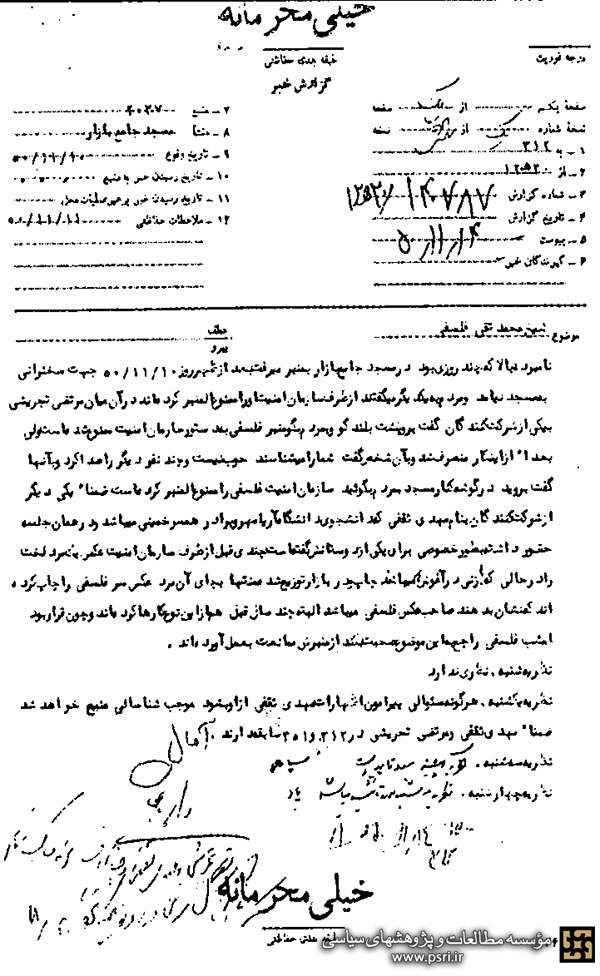 خیلی محرمانه
درجه فوریت
طبقه بندی حفاظتی
گزارش خبر
صفحه یکم از یک صفحه
نسخه شماره یک از نسخه
۱ـ به ۳۱۲
۲ـ از ۱۲۵۲۰
۳ـ شماره گزارش ۱۴۷۸۷
۴ـ تاریخ گزارش ۵۰/۱۱/۱۴
۵ـ پیوست
۶ـ گیرندگان خبر
۷ـ منبع ۲۰۲۷
۸ـ منشأ مسجد جامع بازار
۹ـ تاریخ وقوع ۵۰/۱۱/۱۰
۱۰ـ تاریخ رسیدن خبر به منبع
۱۱ـ تاریخ رسیدن خبر به رهبر عملیات محل
۱۲ـ ملاحظات حفاظتی
موضوع شیخ محمد تقی فلسفی
عطف
پیرو
نامبرده بالا که چند روزی بود در مسجد جامع بازار بمنبر میرفت بعد از ظهر روز ۵۰/۱۱/۱۰ جهت سخنرانی
بمسجد نیامد و مردم بیکدیگر میگفتند از طرف سازمان امنیت او را ممنوع المنبر کرده‌اند در آن میان مرتضی تجریشی
بیکی از شرکت کنندگان گفت برو پشت بلندگو و بمردم بگو منبر فلسفی بدستور سازمان امنیت ممنوع شده است ولی
بعداً از اینکار منصرف شد و بآن شخص گفت شما را میشناسند خوب نیست و چند نفر دیگر را صدا کرد و بآنها
گفت بروید در گوشه کنار مسجد بمردم بگوئید سازمان امنیت فلسفی را ممنوع المنبر کرده است ضمناً یکی دیگر
از شرکت کنندگان بنام مهدی ثقفی که دانشجوی دانشگاه آریامهر و برادر همسر خمینی میباشد و در همان جلسه
حضور داشته بطور خصوصی برای یکی از دوستانش گفته است چندی قبل از طرف سازمان امنیت عکس یکمرد لخت
را در حالی که زنی در آغوش میباشد چاپ و در بازار توزیع شد منتها بجای آن مرد عکس سر فلسفی را چاپ کرده
اند که نشان بدهند صاحب عکس فلسفی میباشد البته چند سال قبل هم از این نوع کارها کرده‌اند و چون قرار بود
امشب فلسفی راجع باین موضوع صحبت کند از منبرش ممانعت بعمل آورده‌اند .
نظریه شنبه . نظری ندارد
نظریه یکشنبه . هرگونه سئوالی پیرامون اظهارات مهدی ثقفی از او بشود موجب شناسائی منبع خواهد شد
ضمناً مهدی ثقفی و مرتضی تجریشی در ۳۱۲ و ۳۰۱ سابقه دارند .
نظریه سه‌شنبه .
نظریه چهارشنبه .
خیلی محرمانه
طبقه بندی حفاظتی
مؤسسه مطالعات و پژوهشهای سیاسی
www.psri.ir